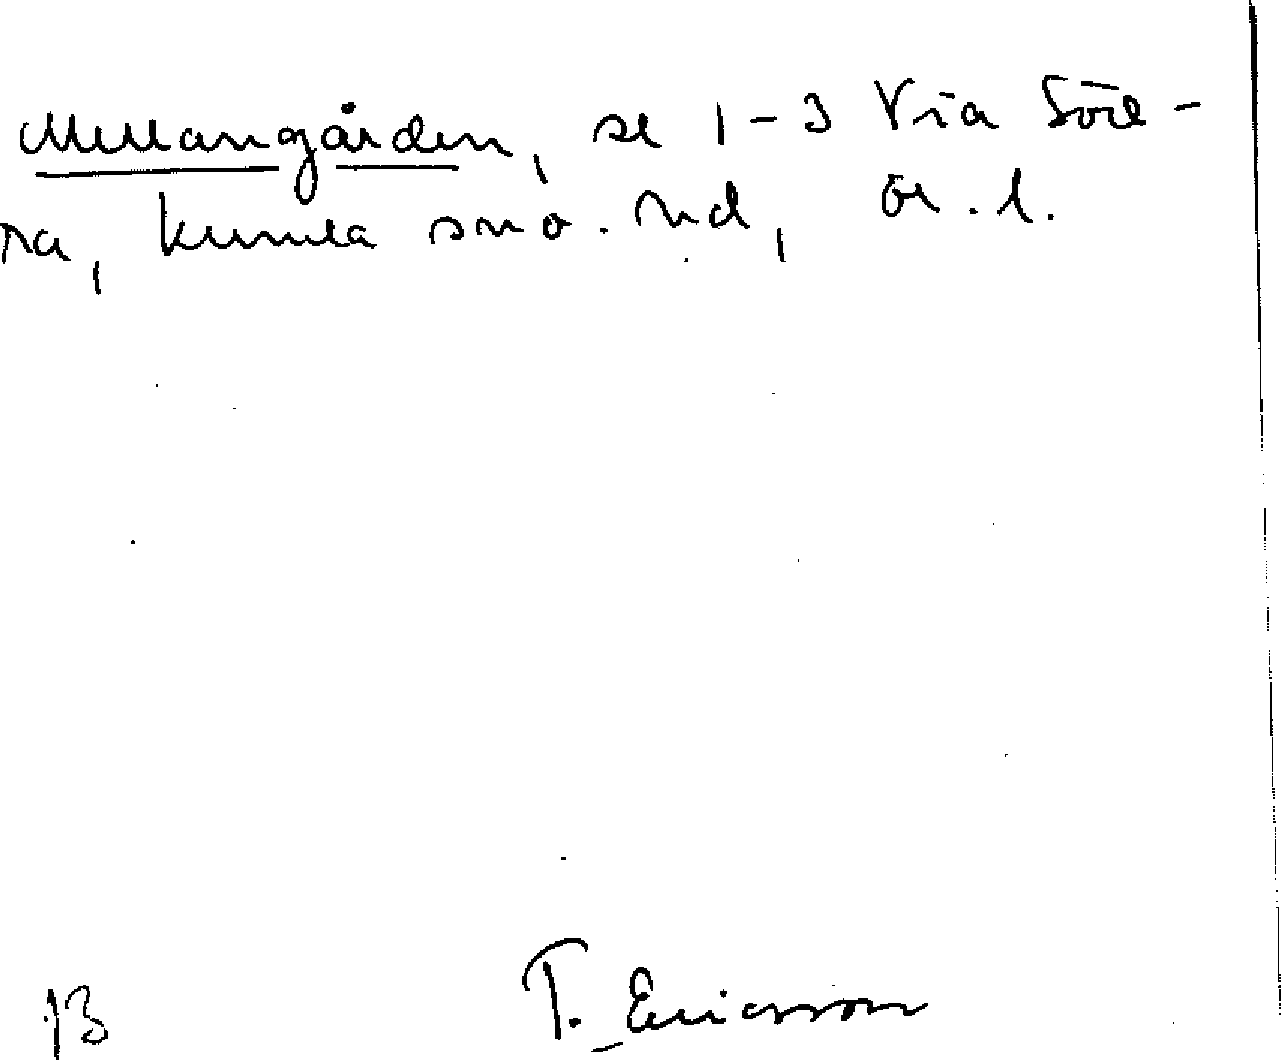 Mellangården, se 1-3 Via Söre-
ra, Kumla snö. hd, Ör. l.
T. Ericsson